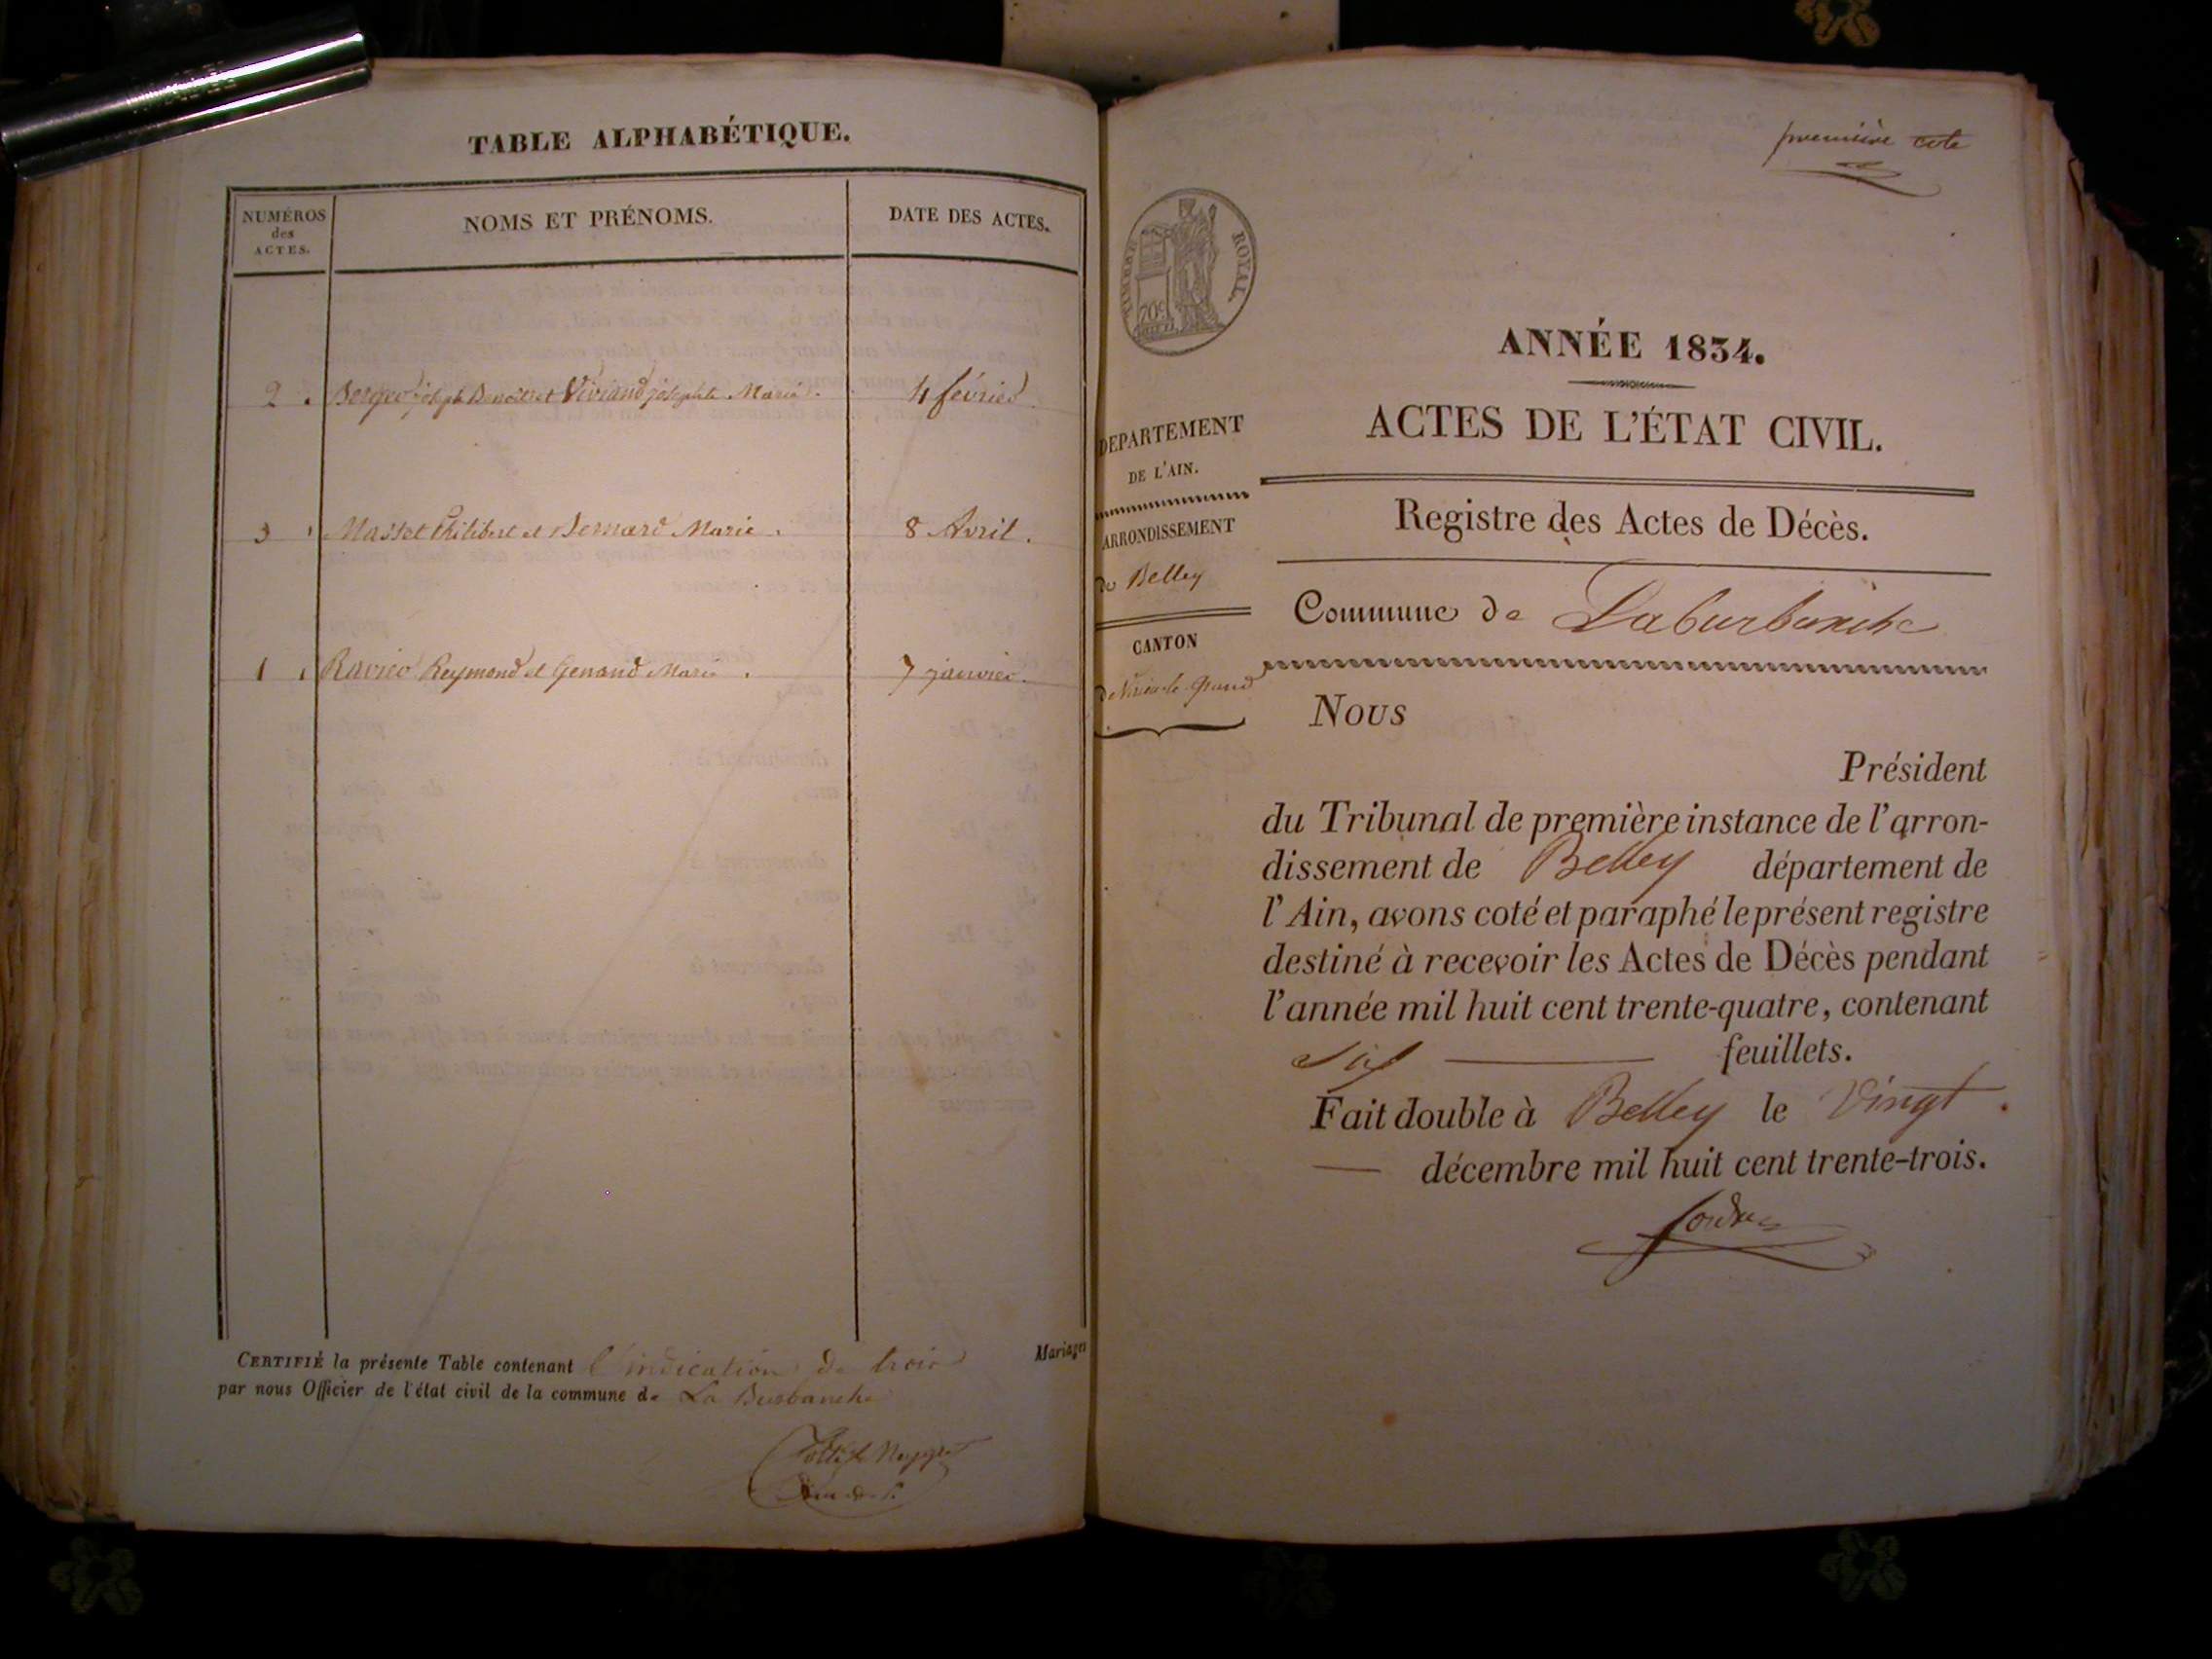 TABLE ALPHABÉTIQUE.
NUMÉROS
des
ACTES.
NOMS ET PRÉNOMS.
DATE DES ACTES.
2. Berger joseph Benoit et Viviand josephte Marie. 4 février
3. Masset Philibert et Bernard Marie. 8 Avril.
1. Ravier Reymond et Genand Marie. 7 janvier.
CERTIFIÉ la présente Table contenant l'indication de trois Mariages
par nous Officier de l'état civil de la commune de La Burbanche
première cote
TIMBRE ROYAL.
70c
DEPARTEMENT
DE L'AIN.
ARRONDISSEMENT
de Belley
CANTON
de Virieu-le-Grand
ANNÉE 1834.
ACTES DE L'ÉTAT CIVIL.
Registre des Actes de Décès.
Commune de Laburbanche
NOUS
Président
du Tribunal de première instance de l'arron-
dissement de Belley département de
l'Ain, avons coté et paraphé le présent registre
destiné à recevoir les Actes de Décès pendant
l'année mil huit cent trente-quatre, contenant
six feuillets.
Fait double à Belley le Vingt
décembre mil huit cent trente-trois.